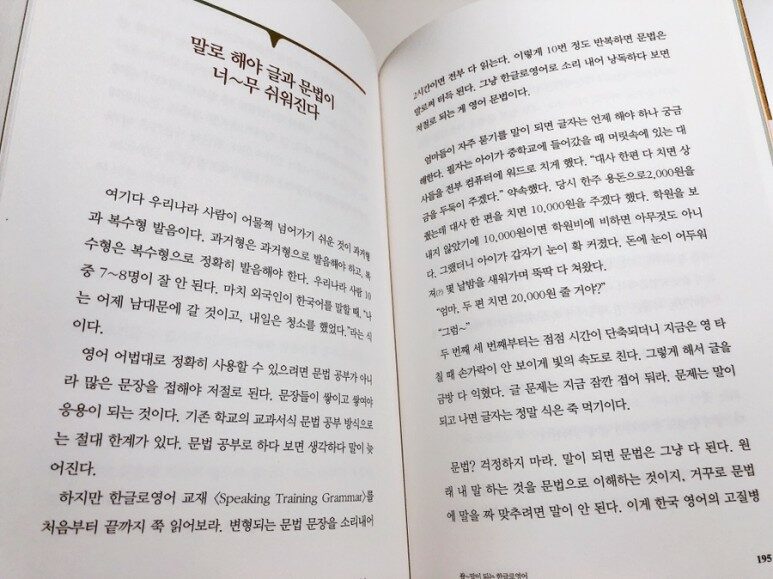 말로 해야 글과 문법이
너~무 쉬워진다
여기다 우리나라 사람이 어물쩍 넘어가기 쉬운 것이 과거형
과 복수형 발음이다. 과거형은 과거형으로 발음해야 하고, 복
수형은 복수형으로 정확히 발음해야 한다. 우리나라 사람 10
중 7~8명이 잘 안 된다. 마치 외국인이 한국어를 말할 때, "나
는 어제 남대문에 갈 것이고, 내일은 청소를 했었다."라는 식
이다.
영어 어법대로 정확히 사용할 수 있으려면 문법 공부가 아니
라 많은 문장을 접해야 저절로 된다. 문장들이 쌓이고 쌓여야
응용이 되는 것이다. 기존 학교의 교과서식 문법 공부 방식으로
는 절대 한계가 있다. 문법 공부로 하다 보면 생각하다 말이 늦
어진다.
하지만 한글로영어 교재 〈Speaking Training Grammar〉를
처음부터 끝까지 쭉 읽어보라. 변형되는 문법 문장을 소리내어
2시간이면 전부 다 읽는다. 이렇게 10번 정도 반복하면 문법은
말로써 터득 된다. 그냥 한글로영어로 소리 내어 낭독하다 보면
저절로 되는 게 영어 문법이다.
엄마들이 자주 묻기를 말이 되면 글자는 언제 해야 하나 궁금
해한다. 필자는 아이가 중학교에 들어갔을 때 머릿속에 있는 대
사들을 전부 컴퓨터에 워드로 치게 했다. "대사 한편 다 치면 상
금을 두둑이 주겠다." 약속했다. 당시 한주 용돈으로2,000원을
줬는데 대사 한 편을 치면 10,000원을 주겠다 했다. 학원을 보
내지 않았기에 10,000원이면 학원비에 비하면 아무것도 아니
다. 그랬더니 아이가 갑자기 눈이 확 커졌다. 돈에 눈이 어두워
져(?) 몇 날밤을 새워가며 뚝딱 다 쳐왔다.
"엄마, 두 편 치면 20,000원 줄 거야?"
"그럼~"
두 번째 세 번째부터는 점점 시간이 단축되더니 지금은 영 타
칠 때 손가락이 안 보이게 빛의 속도로 친다. 그렇게 해서 글을
금방 다 익혔다. 글 문제는 지금 잠깐 접어 둬라. 문제는 말이
되고 나면 글자는 정말 식은 죽 먹기이다.
문법? 걱정하지 마라. 말이 되면 문법은 그냥 다 된다. 원
래 내 말 하는 것을 문법으로 이해하는 것이지, 거꾸로 문법
에 말을 짜 맞추려면 말이 안 된다. 이게 한국 영어의 고질병
되는 한글로영어
195